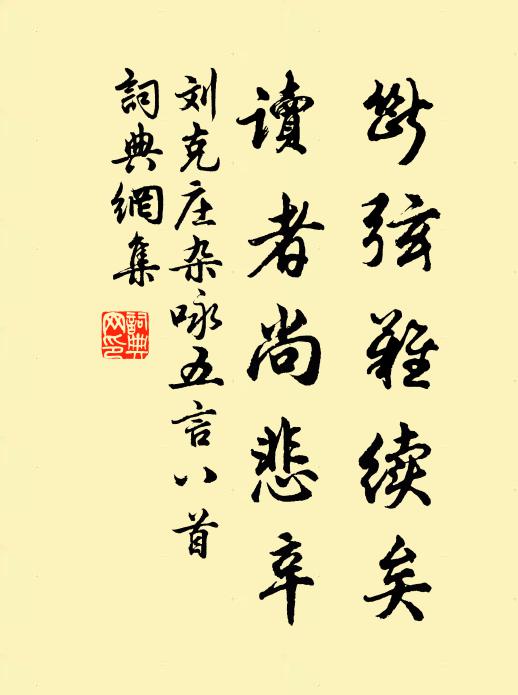 斷弦難續矣
讀者尚悲辛
刘克庄杂咏五言八首
詞典網集
詞典
网印